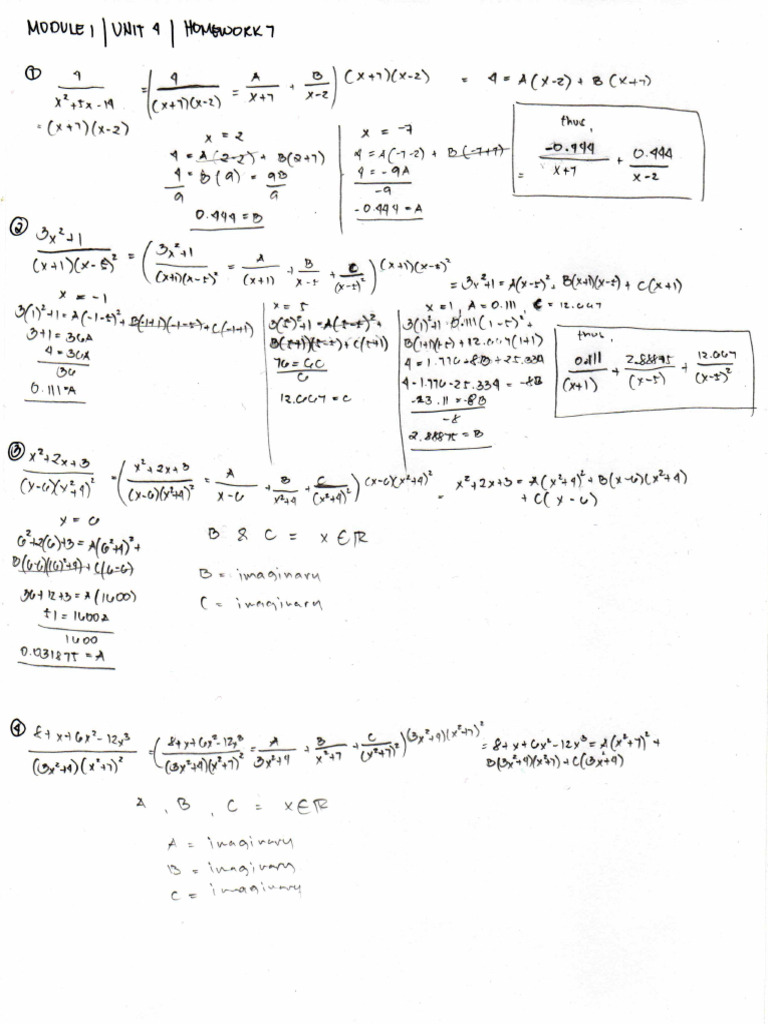 MODULE 1 | UNIT 4 | HOMEWORK 7
① 4/(x²+5x-14) = (4/((x+7)(x-2)) = A/(x+7) + B/(x-2)) (x+7)(x-2) = 4 = A(x-2) + B(x+7)
= (x+7)(x-2)
x = 2
4 = A(2-2) + B(2+7)
4/9 = B(9)/9 = 9B/9
0.444 = B
x = -7
4 = A(-7-2) + B(-7+7)
4 = -9A
-9
-0.444 = A
thus,
= -0.444/(x+7) + 0.444/(x-2)
② (3x²+1)/((x+1)(x-5)²) = ((3x²+1)/((x+1)(x-5)²) = A/(x+1) + B/(x-5) + C/(x-5)²) (x+1)(x-5)²
= 3x²+1 = A(x-5)² + B(x+1)(x-5) + C(x+1)
x = -1
3(1)²+1 = A(-1-5)² + B(-1+1)(-1-5) + C(-1+1)
3+1 = 36A
4 = 36A
36
0.111 = A
x = 5
3(5)²+1 = A(5-5)² +
B(5+1)(5-5) + C(5+1)
76 = 6C
6
12.667 = C
x = 1, A = 0.111 C = 12.667
3(1)²+1 = 0.111(1-5)² +
B(1+1)(1-5) + 12.667(1+1)
4 = 1.776 + 8B + 25.334
4 - 1.776 - 25.334 = -8B
-23.11 = -8B
-8
2.88875 = B
thus,
0.111/(x+1) + 2.88875/(x-5) + 12.667/(x-5)²
③ (x²+2x+3)/((x-6)(x²+4)²) = ((x²+2x+3)/((x-6)(x²+4)²) = A/(x-6) + B/(x²+4) + C/(x²+4)²) (x-6)(x²+4)²
= x²+2x+3 = A(x²+4)² + B(x-6)(x²+4)
+ C(x-6)
x = 6
6²+2(6)+3 = A(6²+4)² +
B(6-6)(6²+4) + C(6-6)
36+12+3 = A(1600)
51 = 1600A
1600
0.031875 = A
B & C = x∈ℝ
B = imaginary
C = imaginary
④ (8+x+6x²-12x³)/((3x²+4)(x²+7)²) = ((8+x+6x²-12x³)/((3x²+4)(x²+7)²) = A/(3x²+4) + B/(x²+7) + C/(x²+7)²) (3x²+4)(x²+7)²
= 8+x+6x²-12x³ = A(x²+7)² +
B(3x²+4)(x²+7) + C(3x²+4)
A, B, C = x∈ℝ
A = imaginary
B = imaginary
C = imaginary